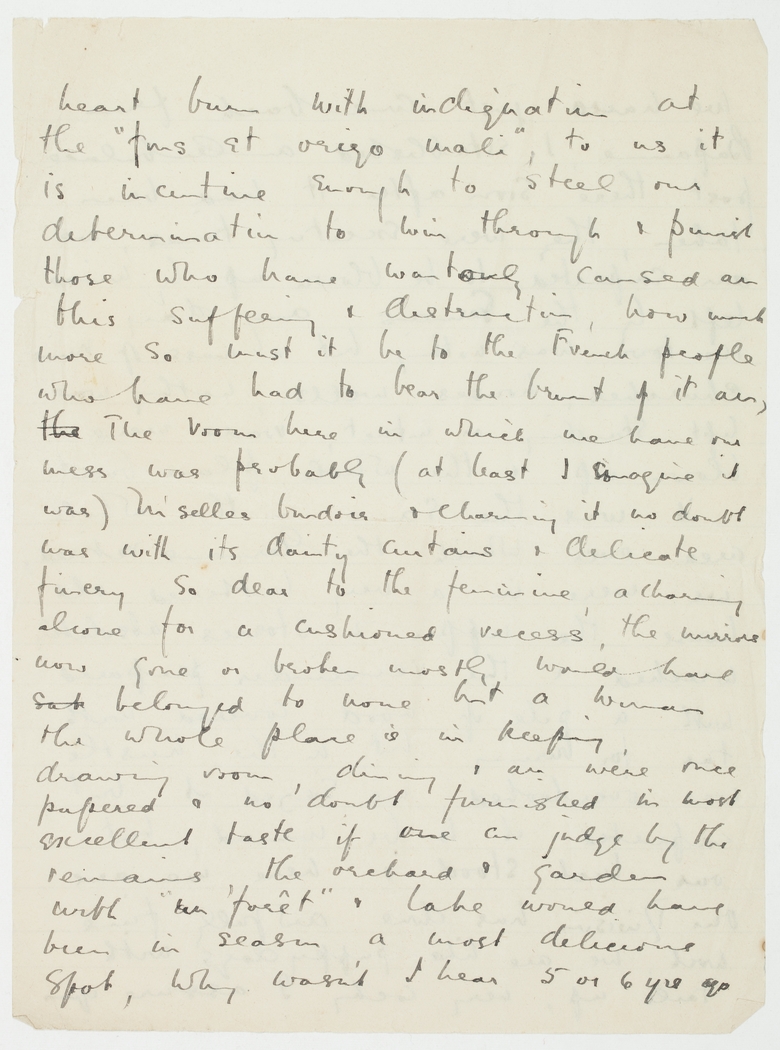 heart burn with indignation at
the "fons et origo mali", to us it
is incentive enough to steel our
determination to win through & punish
those who have wantonly caused all
this suffering & destruction, how much
more so must it be to the French people
who have had to bear the brunt of it all,
the The room here in which we have our
mess was probably (at least I imagine it
was) M'selles boudoir & charming it no doubt
was with its dainty curtains & delicate
finery so dear to the feminine, a charming
alcove for a cushioned recess, the mirrors
now gone or broken mostly, would have
sat belonged to none but a woman
the whole place is in keeping,
drawing room, dining & all were once
papered & no doubt furnished in most
excellent taste if one can judge by the
remains, the orchard & garden
with "un forêt" & lake would have
been in season, a most delicious
spot, Why wasn't I hear 5 or 6 yrs ago